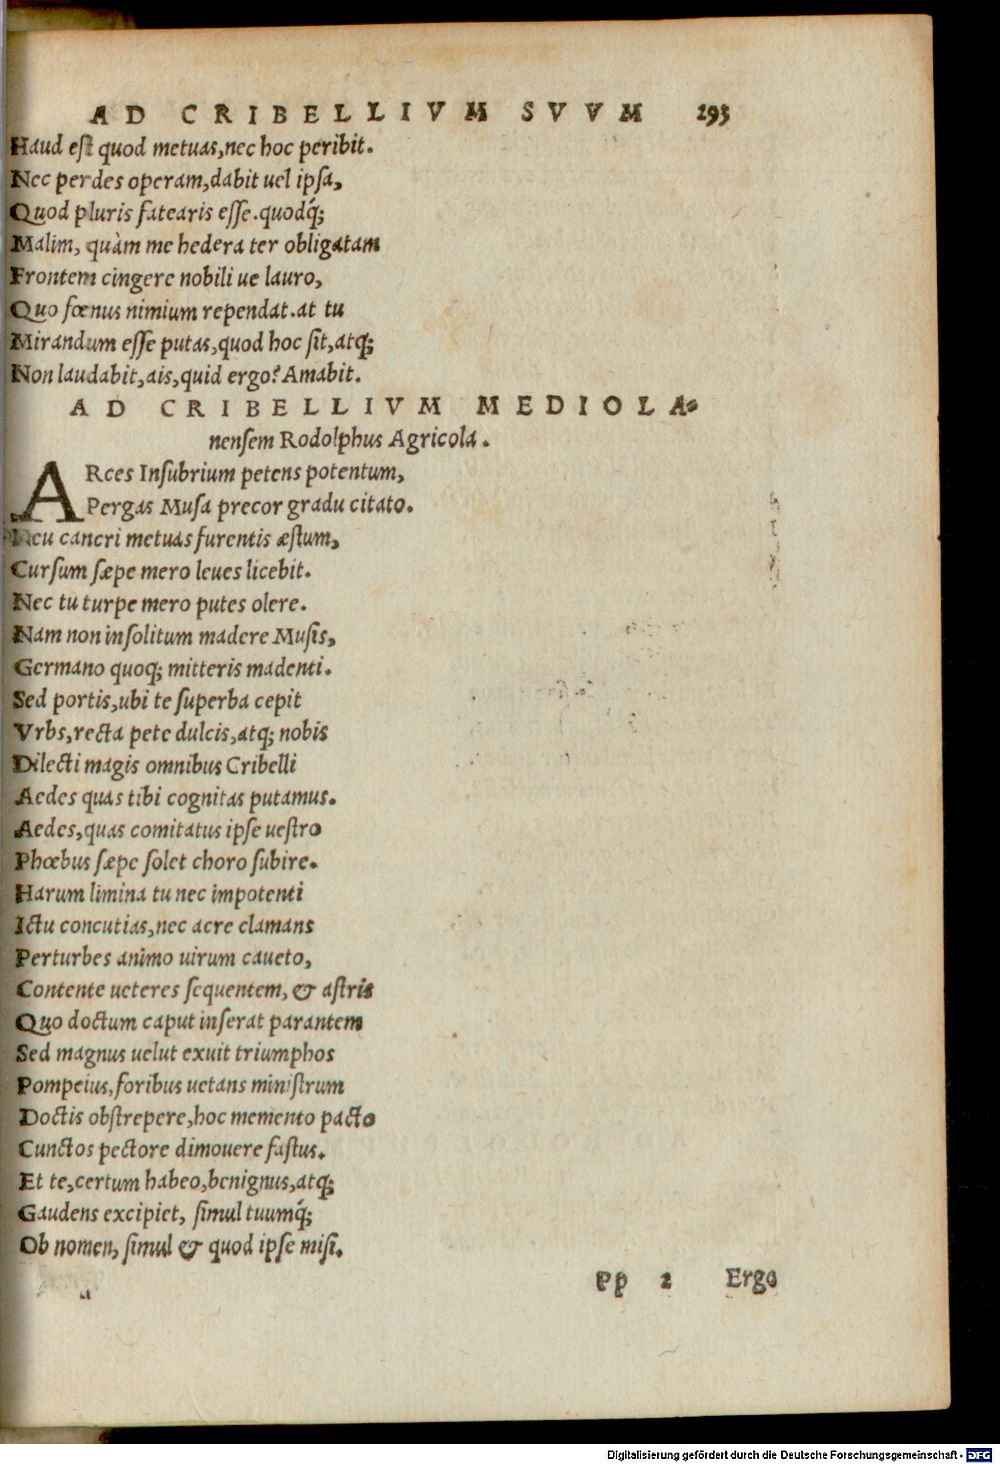 AD CRIBELLIVM SVVM 293
Haud est quod metuas, nec hoc peribit.
Nec perdes operam, dabit uel ipsa,
Quod pluris fatearis esse. quodq́;
Malim, quàm me hedera ter obligatam
Frontem cingere nobili ue lauro,
Quo fœnus nimium rependat. at tu
Mirandum esse putas, quod hoc sit, atq;
Non laudabit, ais, quid ergo? Amabit.
AD CRIBELLIVM MEDIOLA-
nensem Rodolphus Agricola.
ARces Insubrium petens potentum,
Pergas Musa precor gradu citato.
Neu cancri metuas furentis æstum,
Cursum sæpe mero leues licebit.
Nec tu turpe mero putes olere.
Nam non insolitum madere Musis,
Germano quoq; mitteris madenti.
Sed portis, ubi te superba cepit
Vrbs, recta pete dulcis, atq; nobis
Dilecti magis omnibus Cribelli
Aedes quas tibi cognitas putamus.
Aedes, quas comitatus ipse uestro
Phœbus sæpe solet choro subire.
Harum limina tu nec impotenti
Ictu concutias, nec acre clamans
Perturbes animo uirum caueto,
Contente ueteres sequentem, & astris
Quo doctum caput inserat parantem
Sed magnus uelut exuit triumphos
Pompeius, foribus uetans ministrum
Doctis obstrepere, hoc memento pacto
Cunctos pectore dimouere fastus.
Et te, certum habeo, benignus, atq;
Gaudens excipiet, simul tuumq́;
Ob nomen, simul & quod ipse misi.
pp 2 Ergo
Digitalisierung gefördert durch die Deutsche Forschungsgemeinschaft - DFG